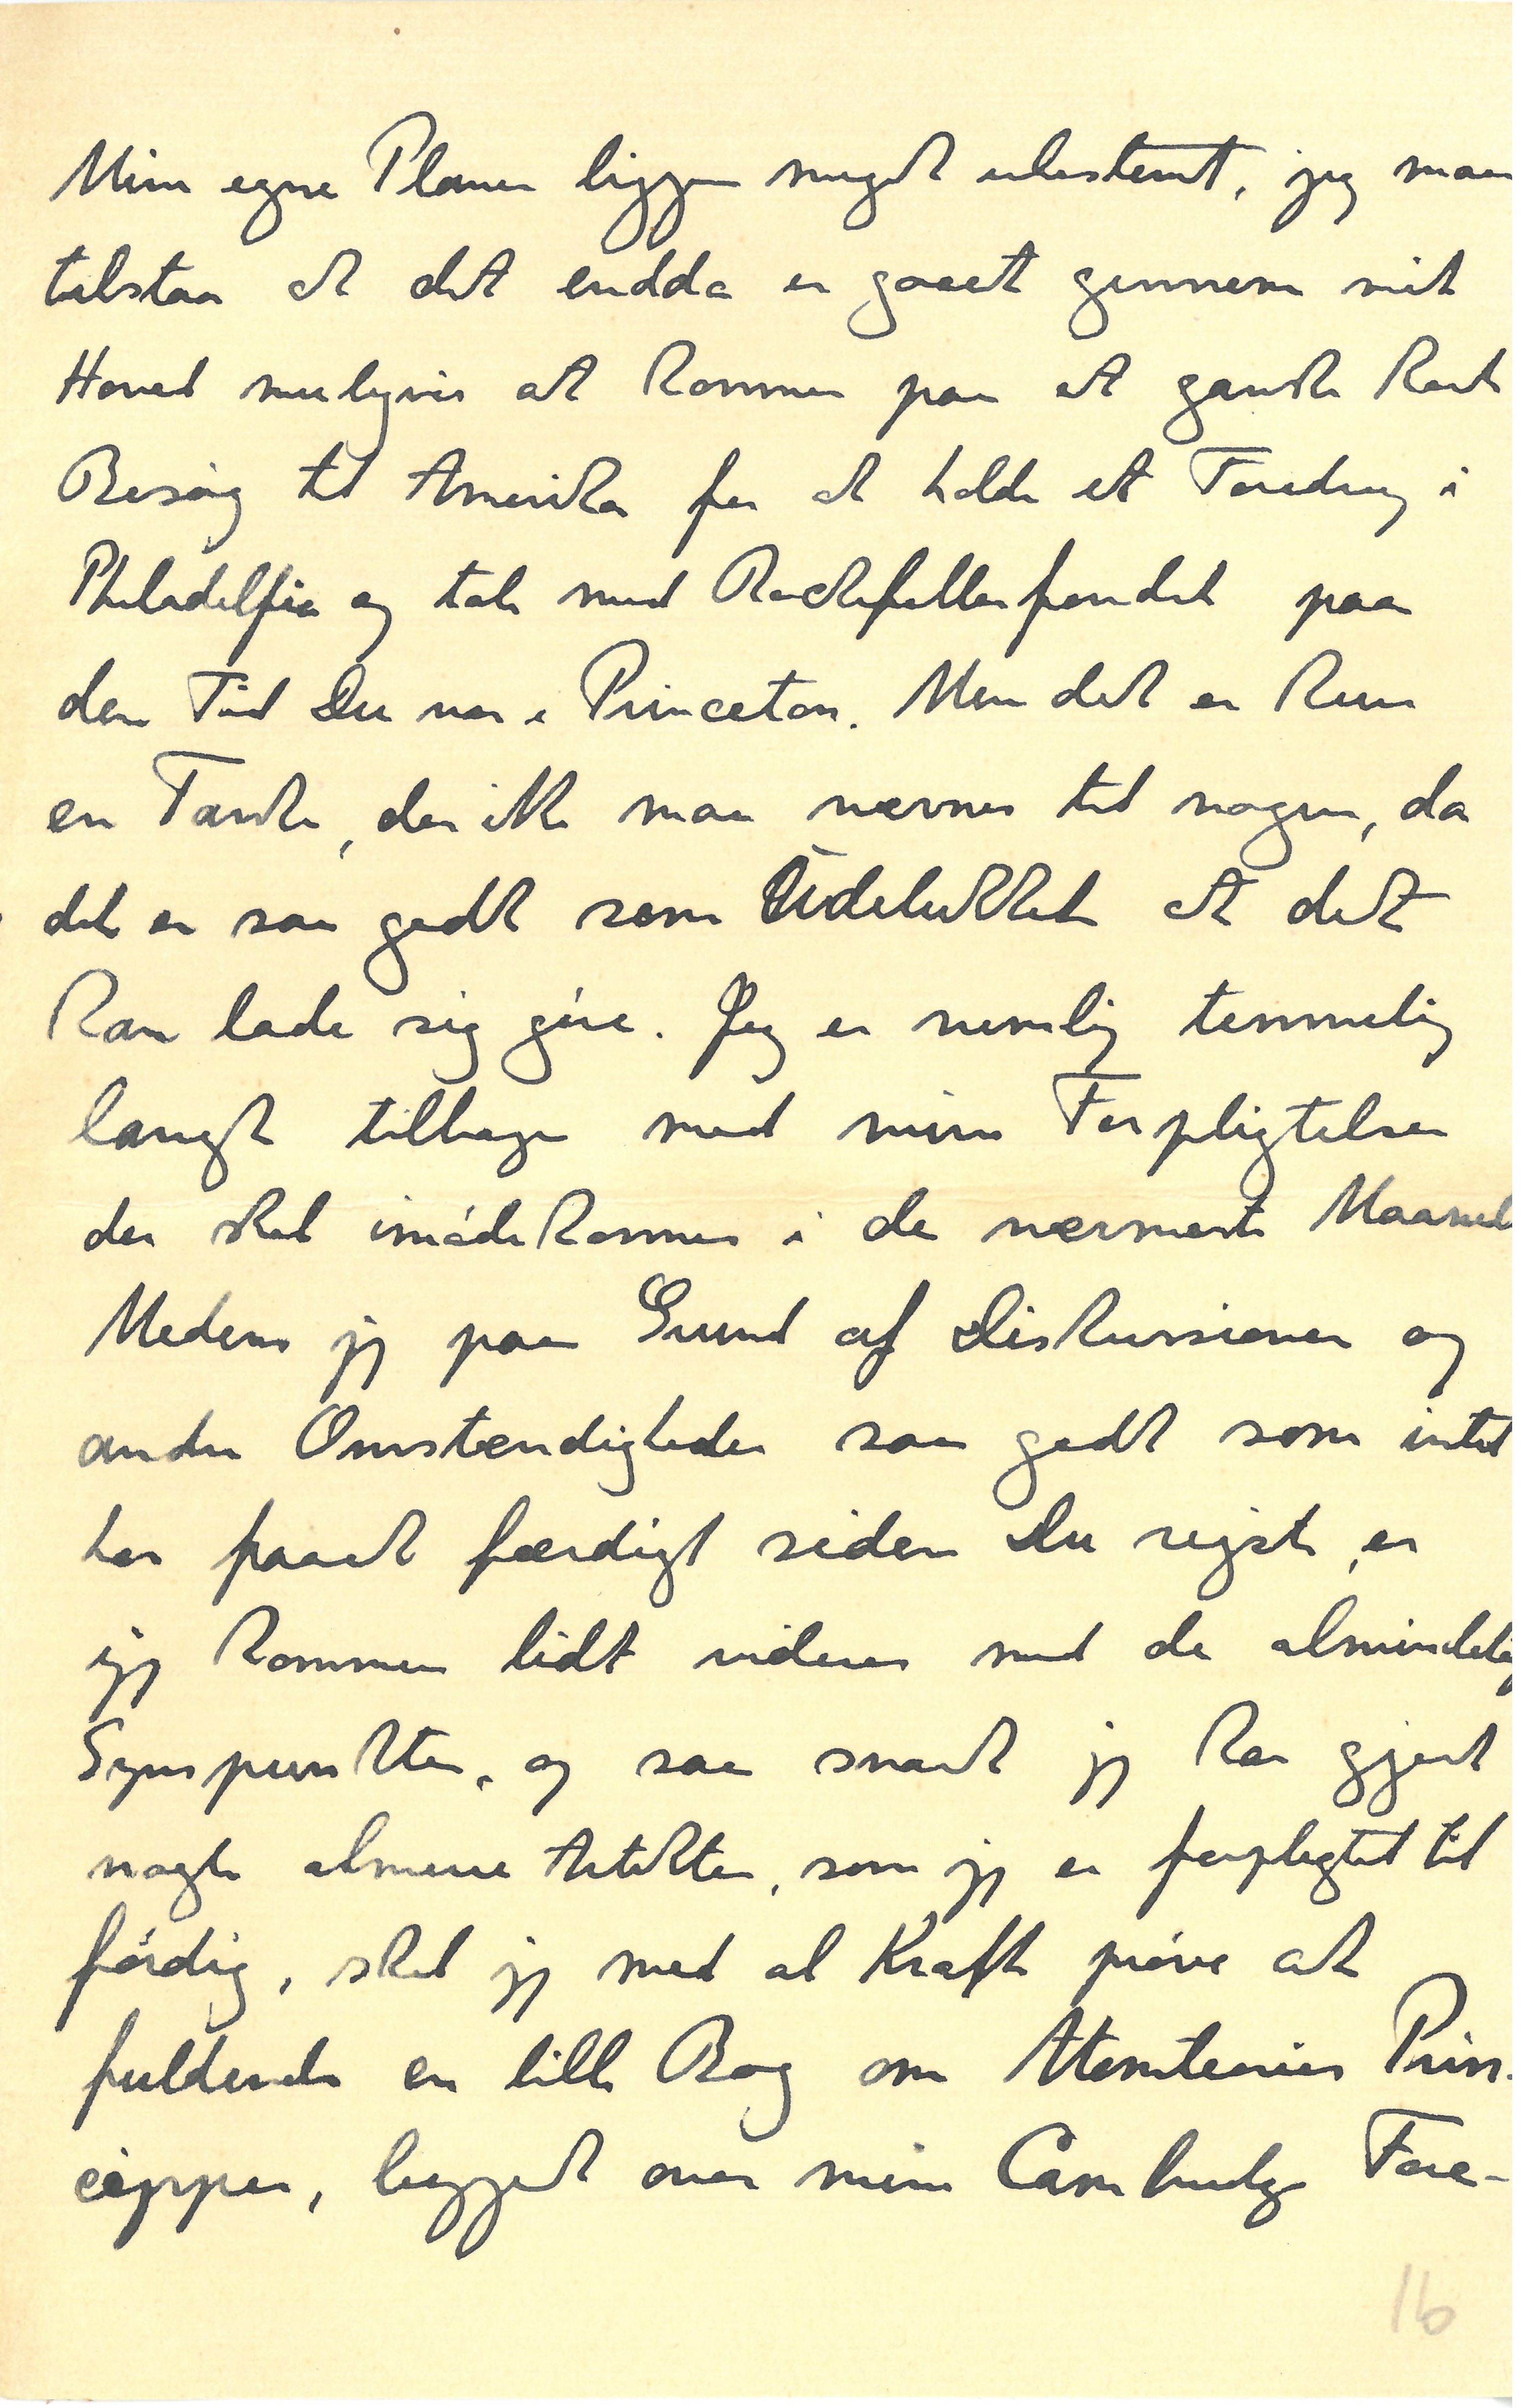 Mine egne Planer ligger meget ubestemt, jeg maa
tilstaa at det endda er gaaet gennem mit
Hoved muligvis at komme paa et ganske kort
Besøg til Amerika for at holde et Foredrag i
Philadelfia og tale med Rockefellerfondet paa
den Tid Du var i Princeton. Men det er kun
en Tanke, der ikke maa nævnes til nogen, da
det er saa godt som Udelukket at det
kan lade sig gøre. Jeg er nemlig temmelig
langt tilbage med mine Forpligtelser
der skal imødekommes i de nærmeste Maaned
Medens jeg paa Grund af Diskussioner og
andre Omstændigheder saa godt som intet
har faaet færdigt siden Du rejste, er
jeg kommen lidt videre med de almindelig
Synspunkter, og saa snart jeg har gjort
nogle almene Artikler, som jeg er forpligtet til
færdig, skal jeg med al Kraft prøve at
fuldende en lille Bog om Atomteoriens Prin-
cipper, bygget over mine Cambridge Fore-
16